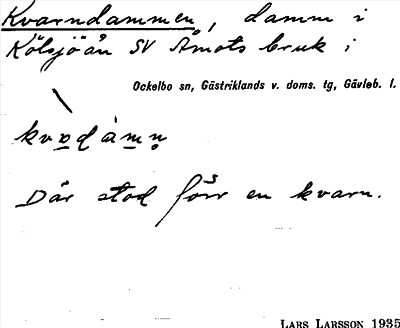 Kvarndammen, damm i
Kölsjöån SV Åmots bruk i
Ockelbo sn, Gästriklands v. doms. tg, Gävleb. l.
Där stod förr en kvarn.
LARS LARSSON 1935